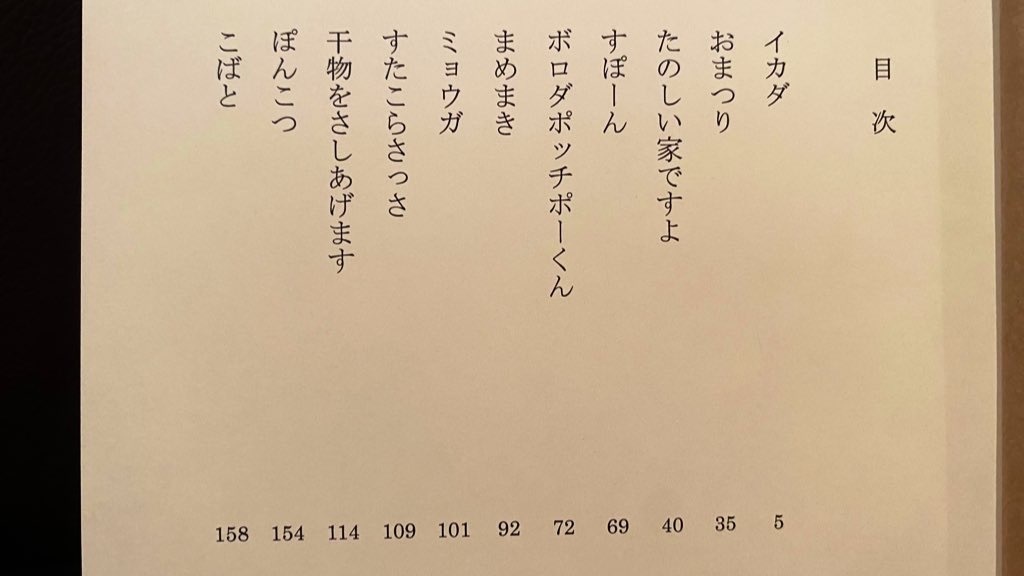 目次
イカダ 5
おまつり 35
たのしい家ですよ 40
すぽーん 69
ボロダポッチポーくん 72
まめまき 92
ミョウガ 101
すたこらさっさ 109
干物をさしあげます 114
ぽんこつ 154
こばと 158